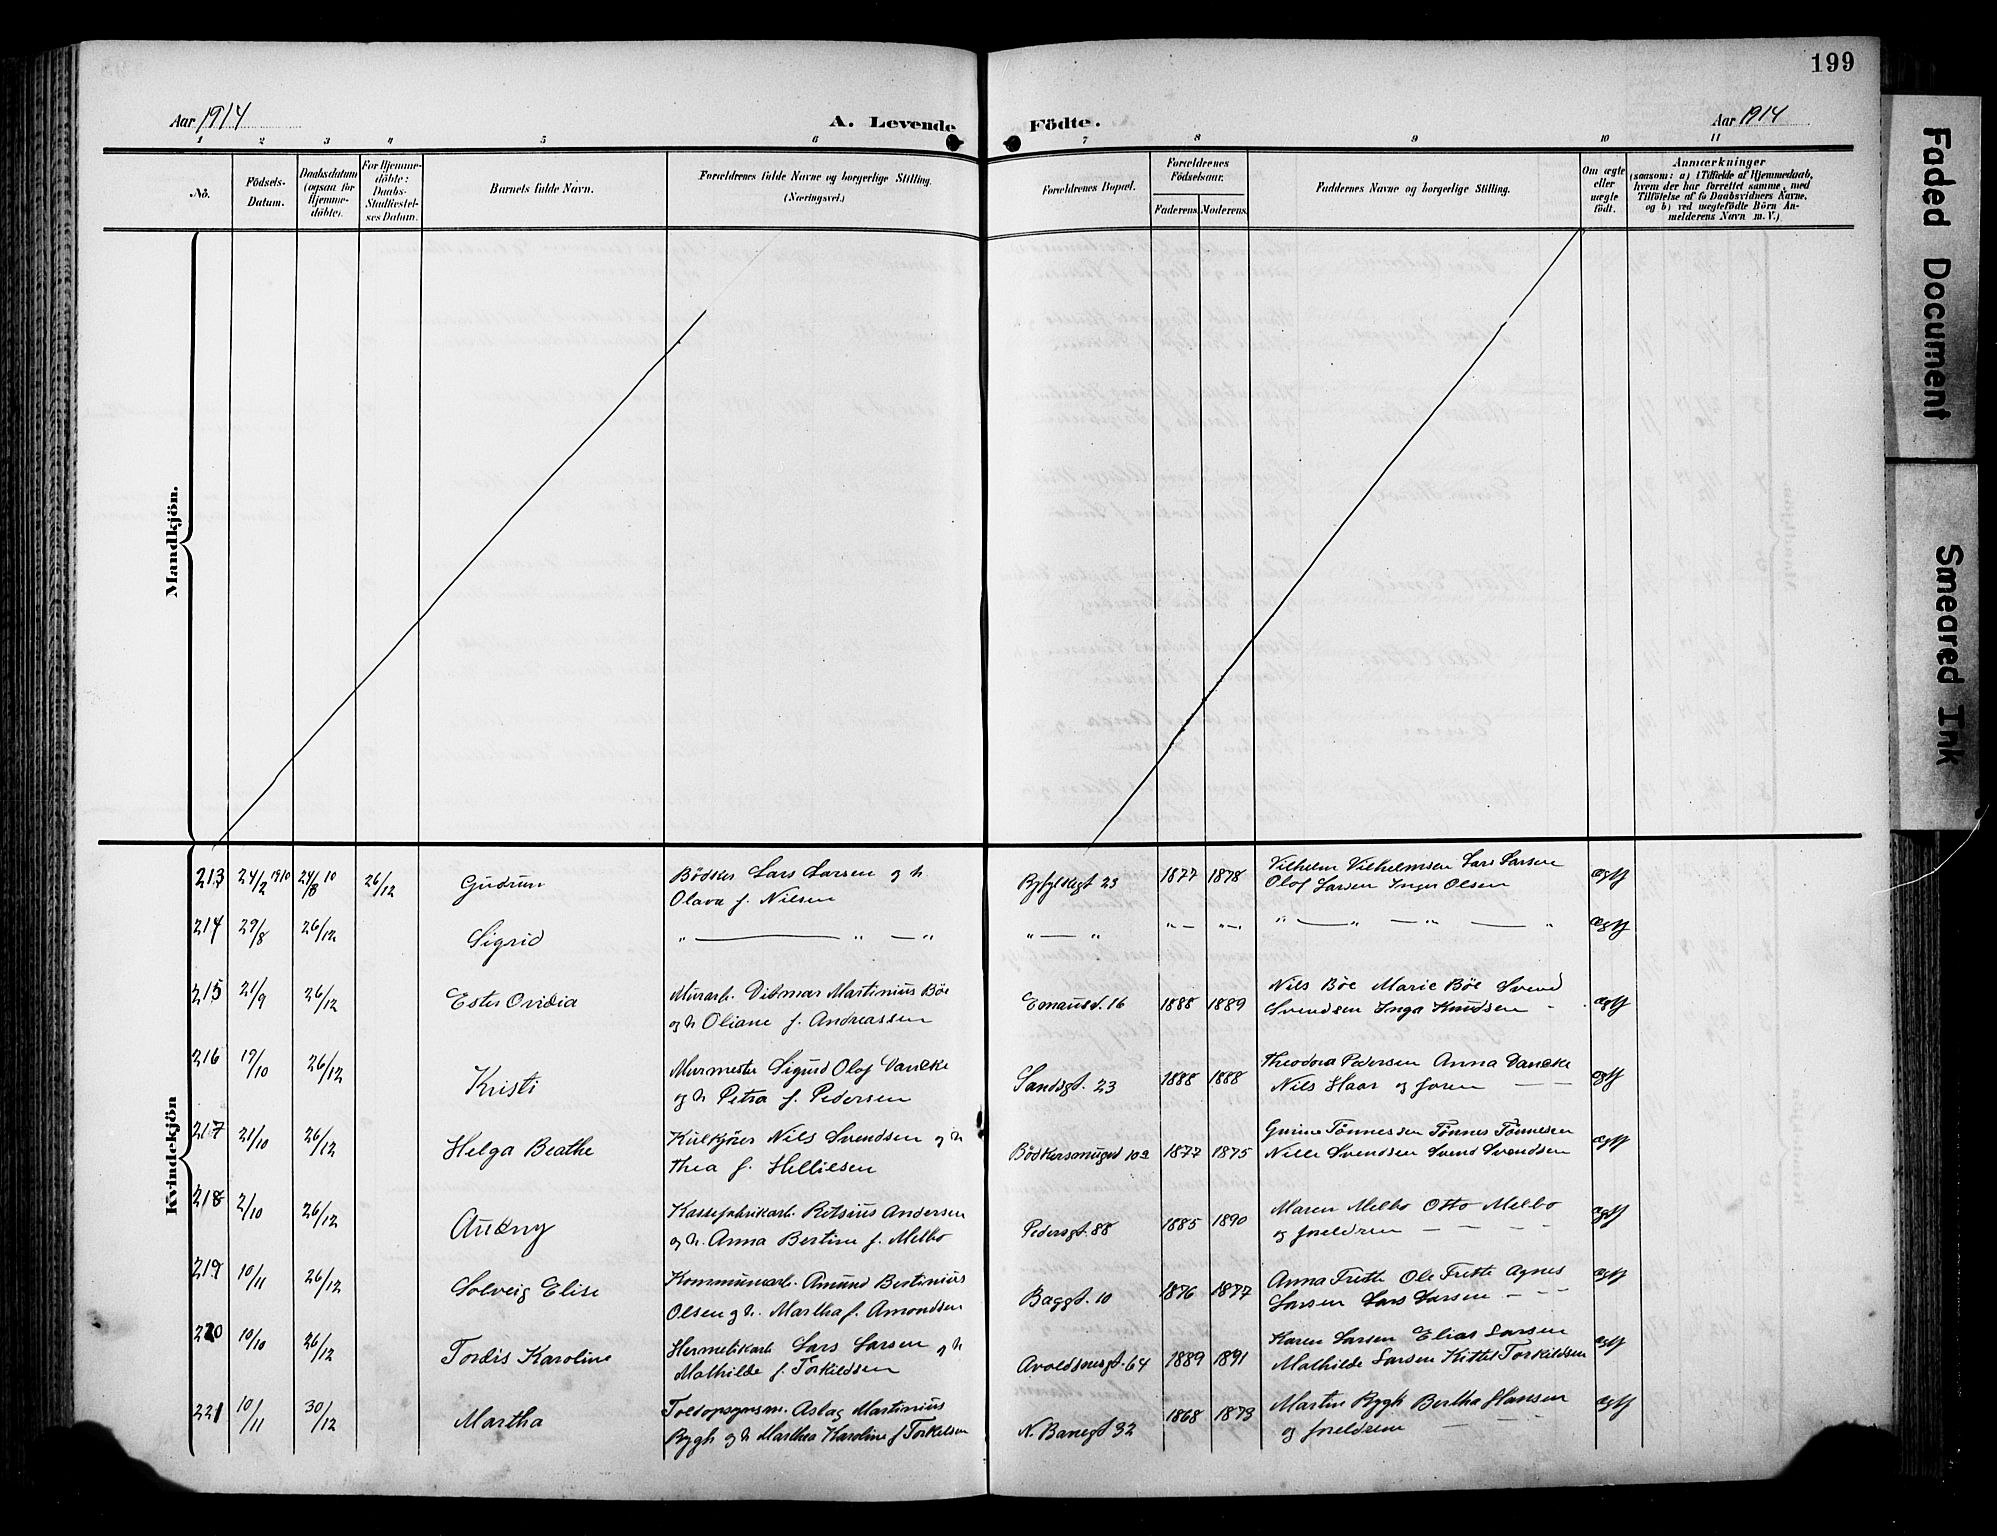 199
Aar 1914
A. Levende
Födte.
Aar 1914
1 2 3 4 5 6 7 8 9 10 11
No.
Födsels-
Datum.
Daabsdatum
(ogsaa for
Hjemme-
döbte).
For Hjemme-
döbte:
Daabs-
Stadfæstel-
ses Datum.
Barnets fulde Navn.
Forældrenes fulde Navne og borgerlige Stilling.
(Næringsvei.)
Forældrenes Bopæl.
Forældrenes
Födselsaar.
Faderens.
Moderens.
Faddernes Navne og borgerlige Stilling.
Om ægte
eller
uægte
født.
Anmærkninger
(saasom: a) i Tilfælde af Hjemmedaab,
hvem der har forrettet samme, med
Tilföielse af to Daabsvidners Navne,
og b) ved uægtefödte Börn An-
melderens Navn m. V.)
Mandkjön.
Kvindekjön
213 24/2 1910 24/8 10 26/12 Gudrun Bødker Lars Larsen og h. Olava f. Nilsen Ryfylkegt 23 1877 1878 Vilhelm Vilhelmsen Lars Larsen Olaf Larsen Inger Olsen ægt
214 29/8 26/12 Sigrid " — " — " " — " " — " — " — " — " — " ægt
215 21/9 26/12 Ester Ovidia Murarb. Ditmar Martinius Bøe og h Oliane f. Andreassen Emausd. 16 1888 1889 Nils Bøe Marie Bøe Svend Svendsen Inga Knudsen ægt
216 19/10 26/12 Kristi Murmester Sigurd Olaf Dancke og h Petra f. Pedersen Sandsgt. 23 1888 1888 Theodora Pedersen Anna Dancke Nils Haar og faren ægt
217 21/10 26/12 Helga Beathe Kulkjører Nils Svendsen og h Thea f. Helliesen 10a 1877 1875 Gurine Tønnessen Tønnes Tønnesen Nille Svendsen Svend Svendsen ægt
218 2/10 26/12 Audny Kassefabrikarb Andersen og h. Anna Bertine f. Melbo Pedersgt. 88 1885 1890 Maren Melbo Otto Melbo og foreldren ægt
219 10/11 26/12 Solveig Elise Kommunearb. Amund Bertinius Olsen og h. Martha f. Amondsen Baggt. 10 1876 1877 Anna Frette Ole Frette Agnes Larsen Lars Larsen ægt
220 10/10 26/12 Tordis Karoline Hermetikarb Lars Larsen og h Mathilde f. Torkildsen 64 1889 1891 Karen Larsen Elias Larsen Mathilde Larsen Kittel Torkildsen ægt
221 10/11 30/12 Martha Toldopsynsm. Aslag Martinius Rygh og h Martha Karoline f Torkelsen N. Banegt 32 1868 1873 Martin Rygh Bertha Hansen og foreldrene ægt
Faded Document
Smeared Ink